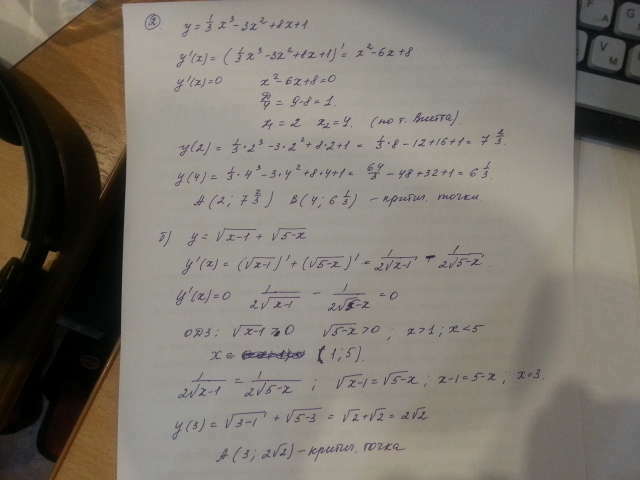 ② y = 1/3 x³ - 3x² + 8x + 1
y'(x) = (1/3 x³ - 3x² + 8x + 1)' = x² - 6x + 8
y'(x) = 0 x² - 6x + 8 = 0
D/4 = 9 - 8 = 1.
x₁ = 2 x₂ = 4. (по т. Виетта)
y(2) = 1/3 · 2³ - 3 · 2² + 8 · 2 + 1 = 1/3 · 8 - 12 + 16 + 1 = 7 2/3.
y(4) = 1/3 · 4³ - 3 · 4² + 8 · 4 + 1 = 64/3 - 48 + 32 + 1 = 6 1/3.
A (2; 7 2/3) B (4; 6 1/3) - критич. точки
б) y = √(x-1) + √(5-x)
y'(x) = (√(x-1))' + (√(5-x))' = 1/(2√(x-1)) - 1/(2√(5-x)).
y'(x) = 0 1/(2√(x-1)) - 1/(2√(5-x)) = 0
ОДЗ: √(x-1) > 0 √(5-x) > 0 ; x > 1 ; x < 5
x = (1; 5).
1/(2√(x-1)) = 1/(2√(5-x)) ; √(x-1) = √(5-x) ; x-1 = 5-x ; x = 3.
y(3) = √(3-1) + √(5-3) = √2 + √2 = 2√2
A (3; 2√2) - критич. точка